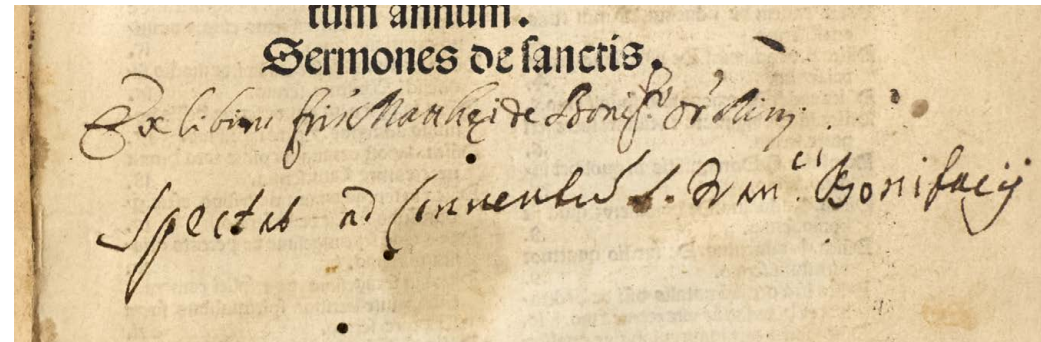 tum annum.
Sermones de sanctis.
Ex libris fris Matthęi de Bonifo. ordi. Min.
Spectat ad Conventũ S. Franci. Bonifacij